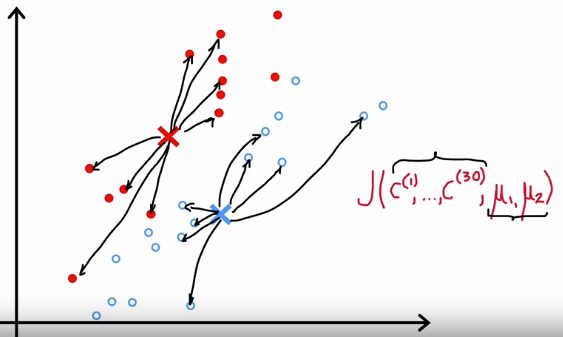 J(c⁽¹⁾,...,c⁽³⁰⁾,μ₁,μ₂)